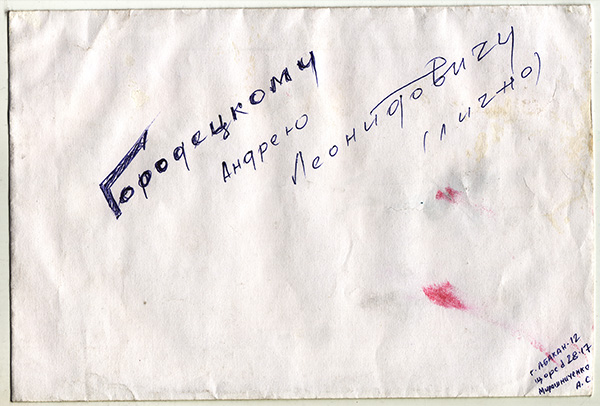 Городецкому
Андрею
Леонидовичу
(лично)
г. Абакан-12
Щорса 28-17
Мирошниченко
А.С.